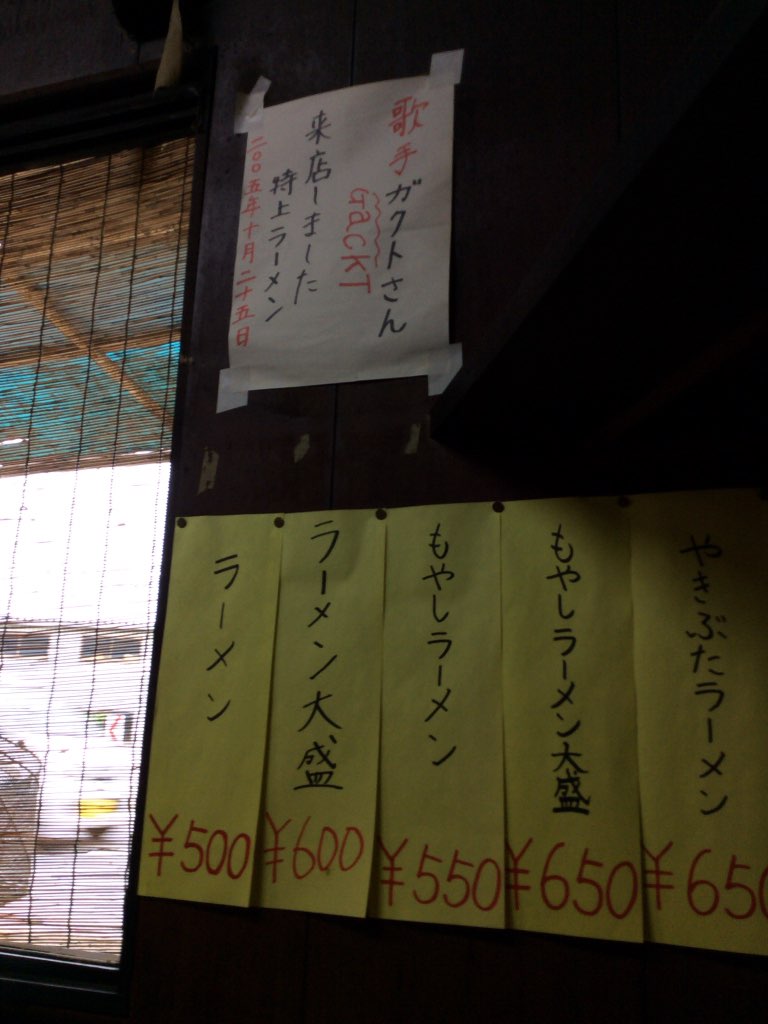 歌手ガクトさん
GACKT
来店しました
特上ラーメン
二〇〇五年十月二十五日
やきぶたラーメン
¥650
もやしラーメン大盛
¥650
もやしラーメン
¥550
ラーメン大盛
¥600
ラーメン
¥500